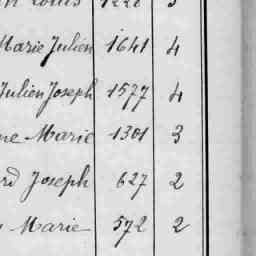 Louis 1228 3
Marie Julien 1641 4
Julien Joseph 1577 4
ne Marie 1301 3
rd Joseph 627 2
Marie 572 2